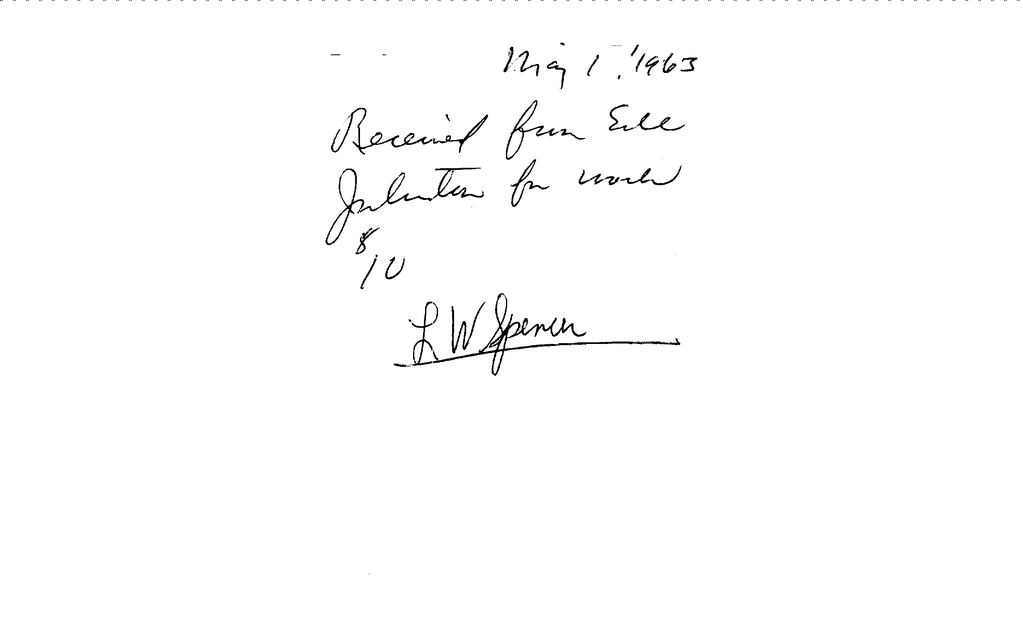 May 1, 1963
Received from
for work
$
10
L W Spencer